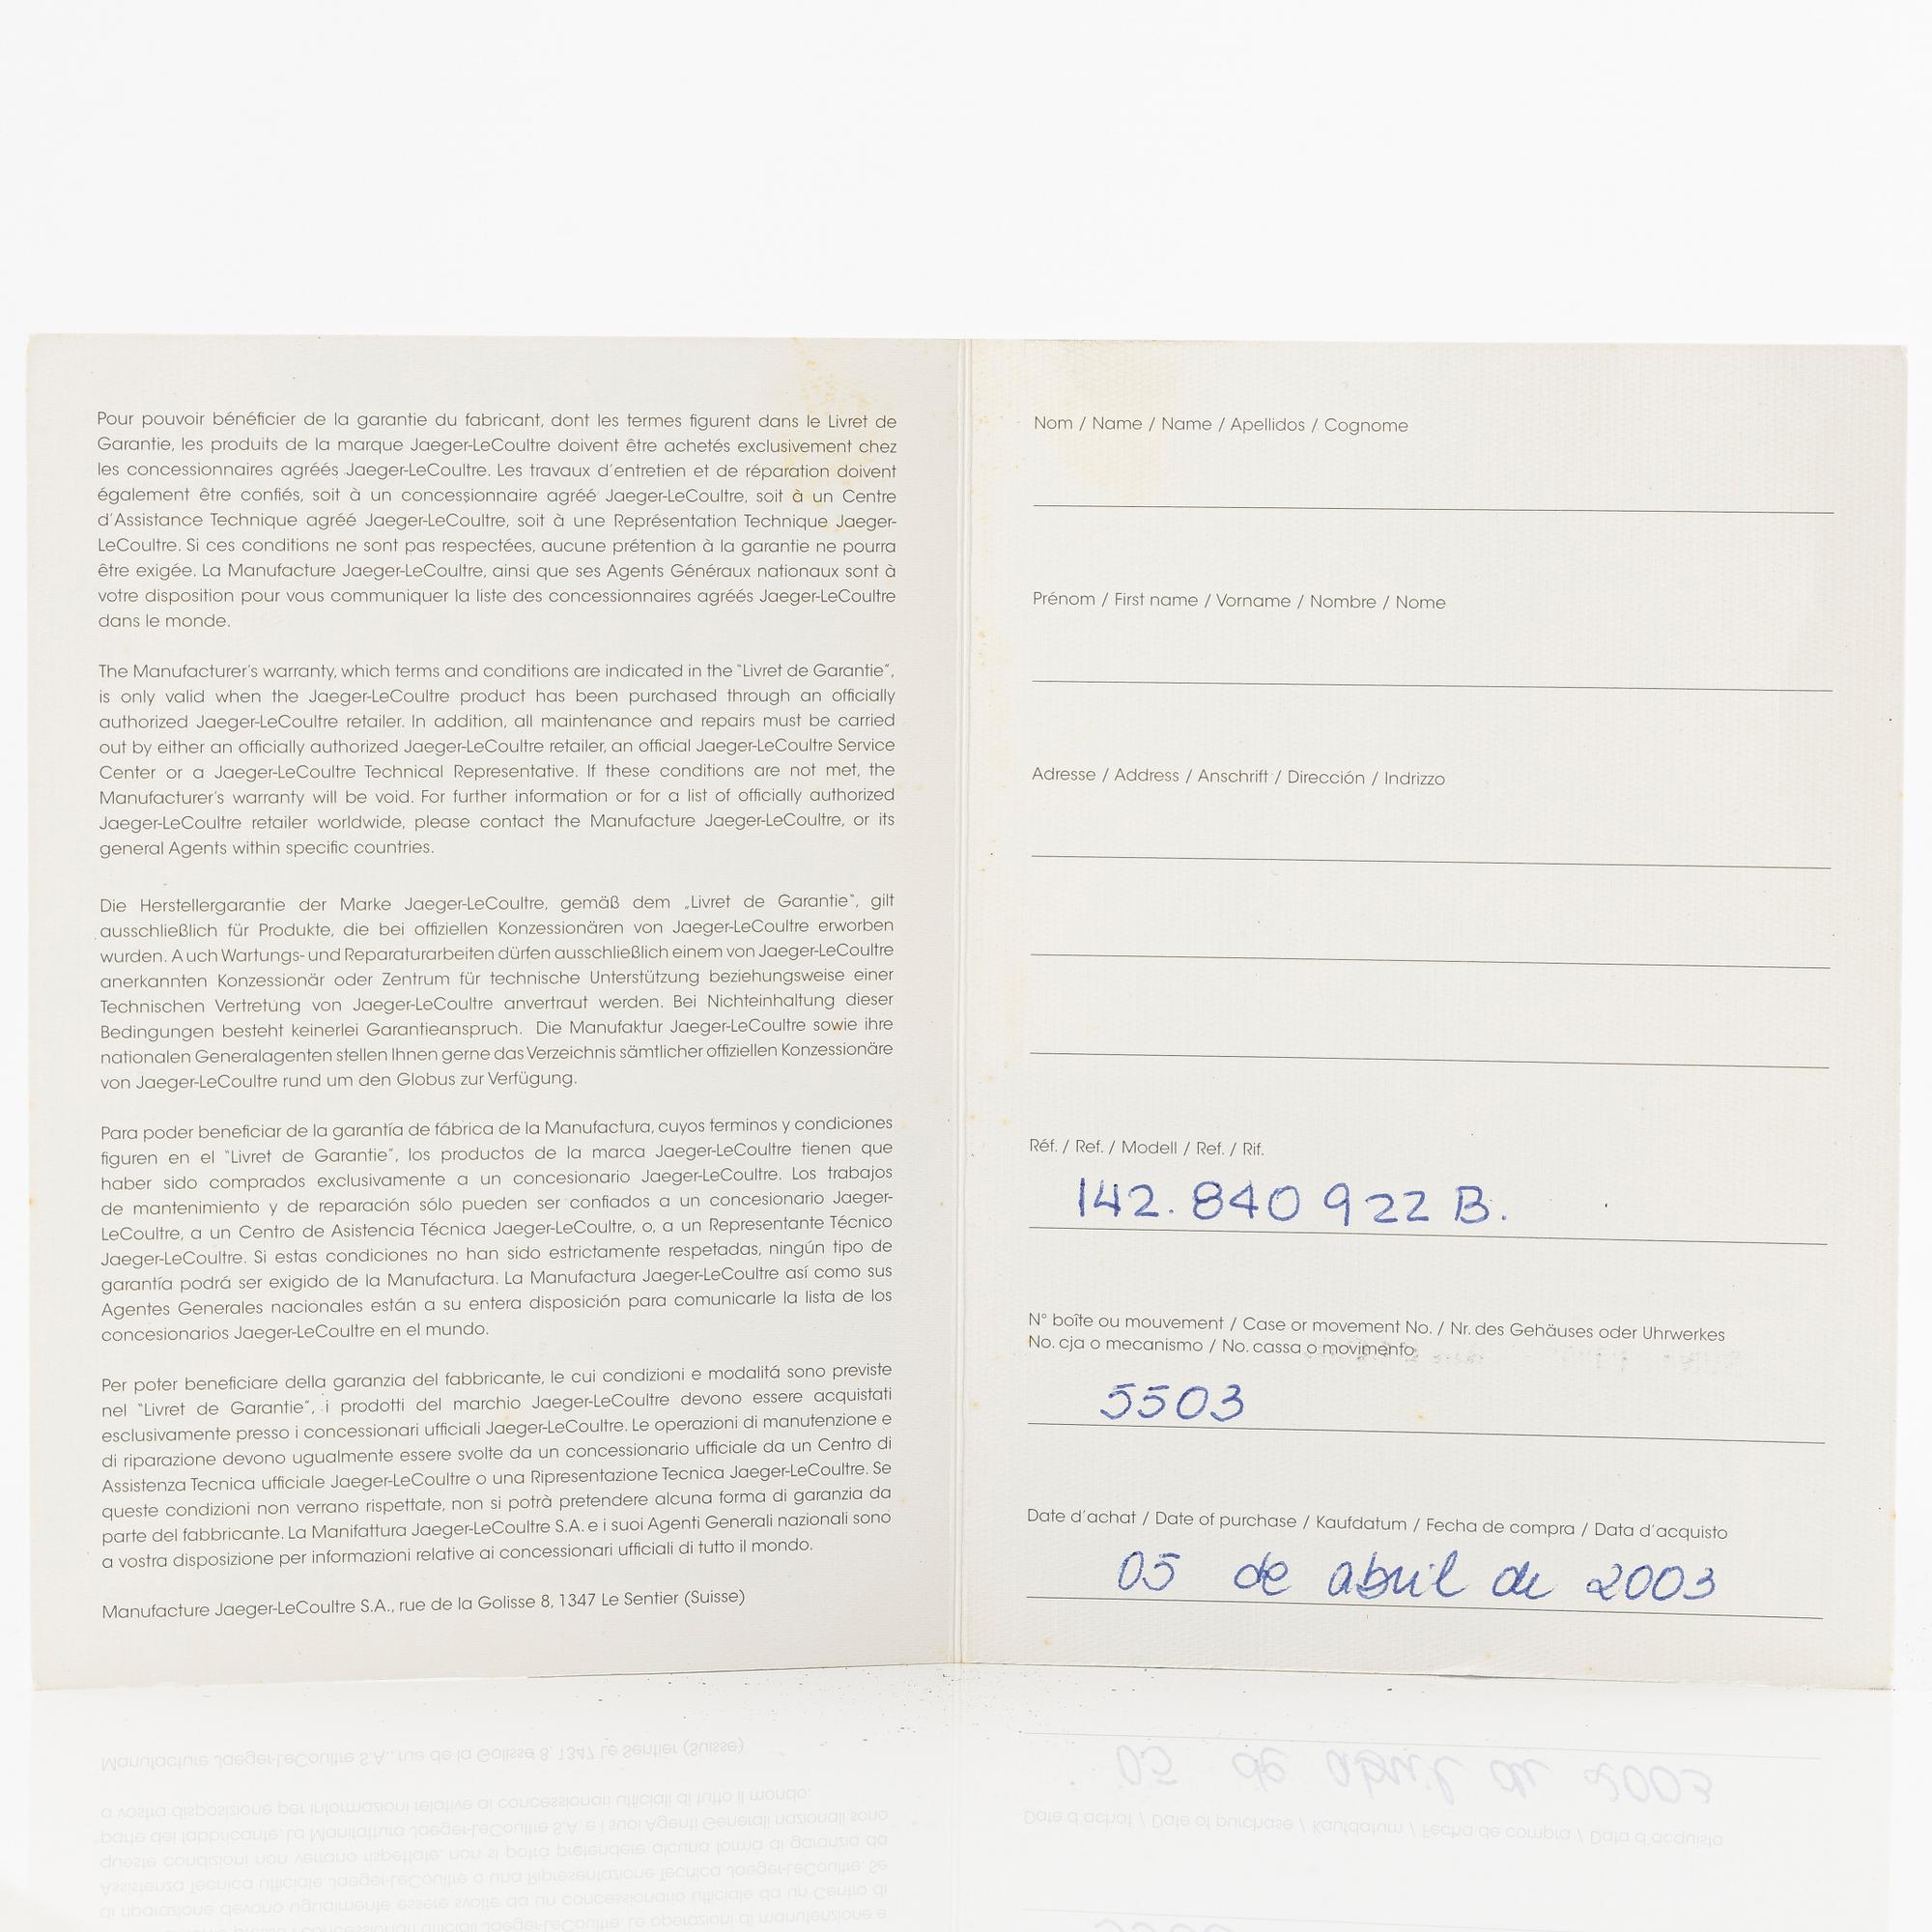 Pour pouvoir bénéficier de la garantie du fabricant, dont les termes figurent dans le Livret de
Garantie, les produits de la marque Jaeger-LeCoultre doivent être achetés exclusivement chez
les concessionnaires agréés Jaeger-LeCoultre. Les travaux d'entretien et de réparation doivent
également être confiés, soit à un concessionnaire agréé Jaeger-LeCoultre, soit à un Centre
d'Assistance Technique agréé Jaeger-LeCoultre, soit à une Représentation Technique Jaeger-
LeCoultre. Si ces conditions ne sont pas respectées, aucune prétention à la garantie ne pourra
être exigée. La Manufacture Jaeger-LeCoultre, ainsi que ses Agents Généraux nationaux sont à
votre disposition pour vous communiquer la liste des concessionnaires agréés Jaeger-LeCoultre
dans le monde.
The Manufacturer's warranty, which terms and conditions are indicated in the "Livret de Garantie",
is only valid when the Jaeger-LeCoultre product has been purchased through an officially
authorized Jaeger-LeCoultre retailer. In addition, all maintenance and repairs must be carried
out by either an officially authorized Jaeger-LeCoultre retailer, an official Jaeger-LeCoultre Service
Center or a Jaeger-LeCoultre Technical Representative. If these conditions are not met, the
Manufacturer's warranty will be void. For further information or for a list of officially authorized
Jaeger-LeCoultre retailer worldwide, please contact the Manufacture Jaeger-LeCoultre, or its
general Agents within specific countries.
Die Herstellergarantie der Marke Jaeger-LeCoultre, gemäß dem „Livret de Garantie", gilt
ausschließlich für Produkte, die bei offiziellen Konzessionären von Jaeger-LeCoultre erworben
wurden. A uch Wartungs- und Reparaturarbeiten dürfen ausschließlich einem von Jaeger-LeCoultre
anerkannten Konzessionär oder Zentrum für technische Unterstützung beziehungsweise einer
Technischen Vertretung von Jaeger-LeCoultre anvertraut werden. Bei Nichteinhaltung dieser
Bedingungen besteht keinerlei Garantieanspruch. Die Manufaktur Jaeger-LeCoultre sowie ihre
nationalen Generalagenten stellen Ihnen gerne das Verzeichnis sämtlicher offiziellen Konzessionäre
von Jaeger-LeCoultre rund um den Globus zur Verfügung.
Para poder beneficiar de la garantía de fábrica de la Manufactura, cuyos terminos y condiciones
figuren en el "Livret de Garantie", los productos de la marca Jaeger-LeCoultre tienen que
haber sido comprados exclusivamente a un concesionario Jaeger-LeCoultre. Los trabajos
de mantenimiento y de reparación sólo pueden ser confiados a un concesionario Jaeger-
LeCoultre, a un Centro de Asistencia Técnica Jaeger-LeCoultre, o, a un Representante Técnico
Jaeger-LeCoultre. Si estas condiciones no han sido estrictamente respetadas, ningún tipo de
garantía podrá ser exigido de la Manufactura. La Manufactura Jaeger-LeCoultre así como sus
Agentes Generales nacionales están a su entera disposición para comunicarle la lista de los
concesionarios Jaeger-LeCoultre en el mundo.
Per poter beneficiare della garanzia del fabbricante, le cui condizioni e modalitá sono previste
nel "Livret de Garantie", i prodotti del marchio Jaeger-LeCoultre devono essere acquistati
esclusivamente presso i concessionari ufficiali Jaeger-LeCoultre. Le operazioni di manutenzione e
di riparazione devono ugualmente essere svolte da un concessionario ufficiale da un Centro di
Assistenza Tecnica ufficiale Jaeger-LeCoultre o una Ripresentazione Tecnica Jaeger-LeCoultre. Se
queste condizioni non verrano rispettate, non si potrà pretendere alcuna forma di garanzia da
parte del fabbricante. La Manifattura Jaeger-LeCoultre S.A. e i suoi Agenti Generali nazionali sono
a vostra disposizione per informazioni relative ai concessionari ufficiali di tutto il mondo.
Manufacture Jaeger-LeCoultre S.A., rue de la Golisse 8, 1347 Le Sentier (Suisse)
Nom / Name / Name / Apellidos / Cognome
Prénom / First name / Vorname / Nombre / Nome
Adresse / Address / Anschrift / Dirección / Indrizzo
Réf. / Ref. / Modell / Ref. / Rif.
142. 840 922 B.
N° boîte ou mouvement / Case or movement No. / Nr. des Gehäuses oder Uhrwerkes
No. cja o mecanismo / No. cassa o movimento
5503
Date d'achat / Date of purchase / Kaufdatum / Fecha de compra / Data d'acquisto
05 de abril de 2003